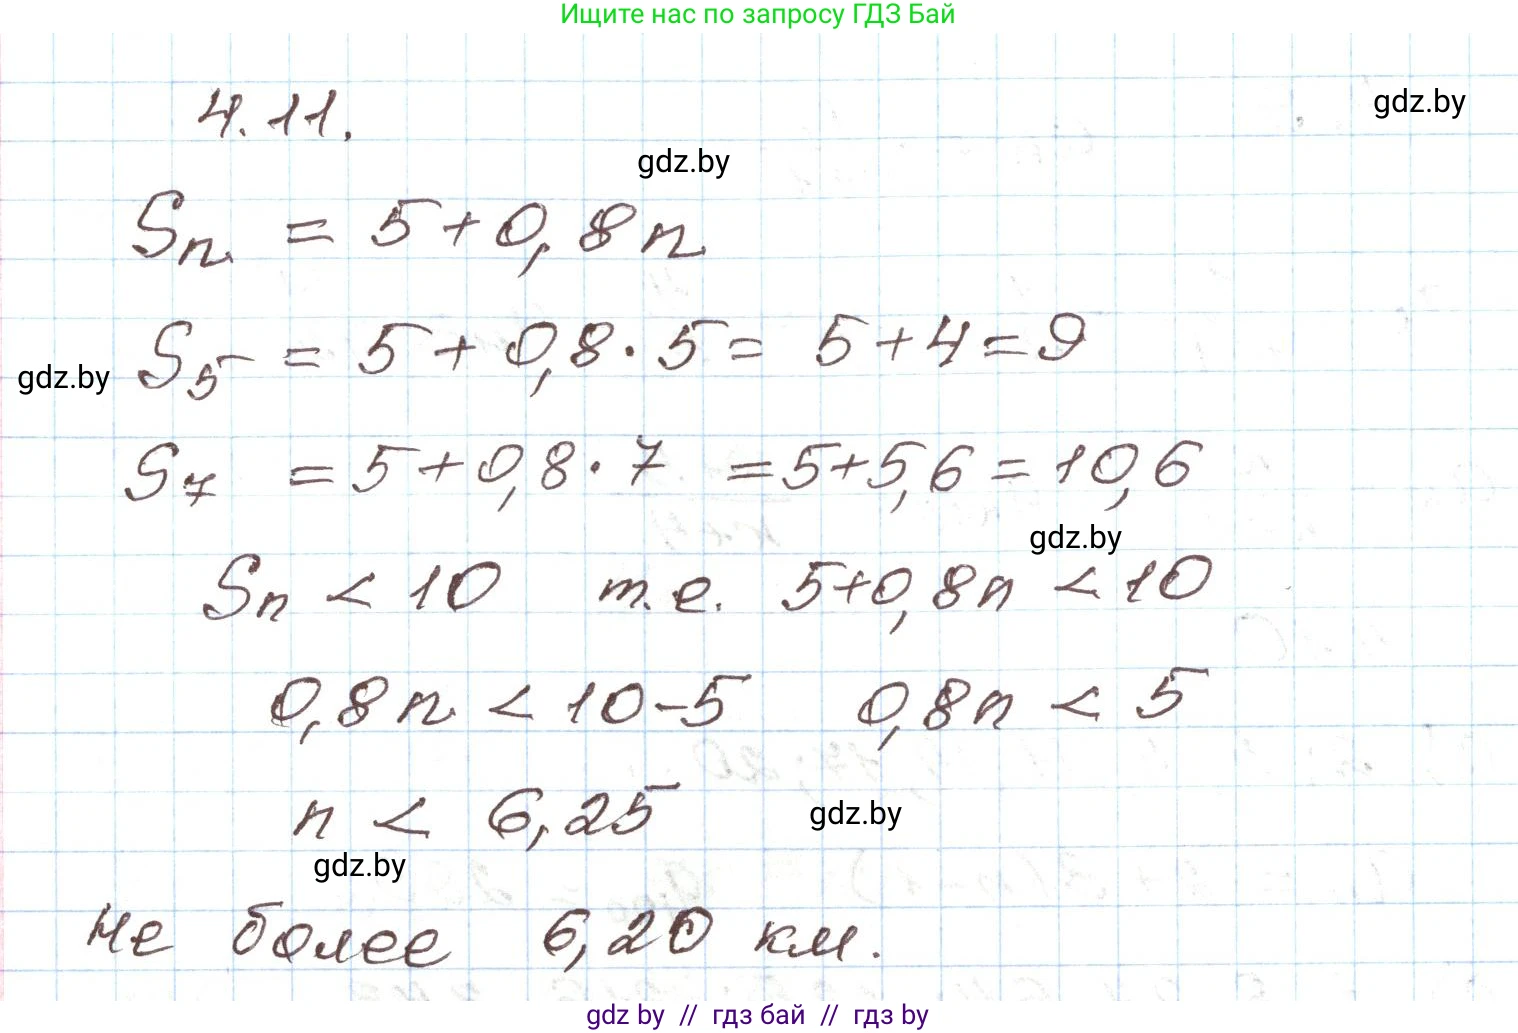 Ищите нас по запросу ГДЗ Бай
4.11.
gdz.by
gdz.by
Sn = 5+0,8n
S5 = 5+0,8·5= 5+4=9
gdz.by
S7 =5+0,8·7 =5+5,6=10,6
gdz.by
Sn < 10 т.е. 5+0,8n < 10
0,8n < 10-5 0,8n < 5
n < 6,25
gdz.by
gdz.by
не более 6,20 км.
gdz by // гдз бай // гдз by